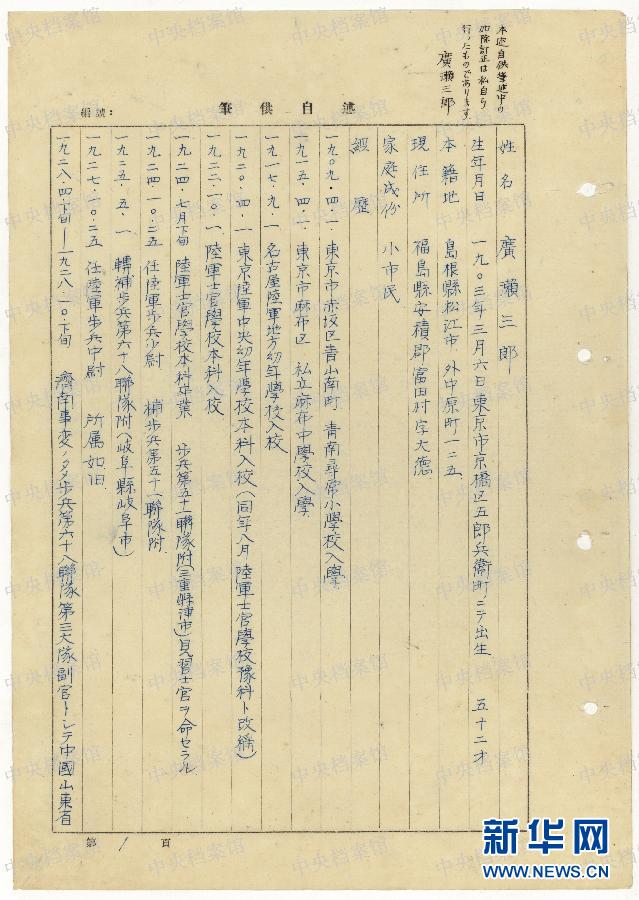 本述自供筆述中の
加除訂正は私自ら
行ったものであります
廣瀬三郎
編號:
筆供自述
姓名 廣瀬三郎
生年月日 一九〇三年三月六日東京市京橋区五郎兵衛町ニテ出生 五十二才
本籍地 島根縣松江市外中原町一二五
現住所 福島縣安積郡富田村字大徳
家庭成份 小市民
經歷
一九〇九・四・一 東京市赤坂区青山南町 青南尋常小學校入學
一九一五・四・一 東京市麻布区 私立麻布中學校入學
一九一七・九・一 名古屋陸軍地方幼年學校入校
一九二〇・四・一 東京陸軍中央幼年學校本科入校(同年八月陸軍士官學校豫科ト改稱)
一九二二・一〇・一 陸軍士官學校本科入校
一九二四・七月下旬 陸軍士官學校本科卒業 歩兵第五十一聯隊附(三重縣津市)見習士官ヲ命セラル
一九二四・一〇・二五 任陸軍歩兵少尉 補歩兵第五十一聯隊附
一九二五・五・一 轉補歩兵第六十八聯隊附(岐阜縣岐阜市)
一九二七・一〇・二五 任陸軍歩兵中尉 所属如旧
一九二八・四・下旬—一九二八・一〇・下旬 濟南事変ノタメ歩兵第六十八聯隊第三大隊副官トシテ中國山東省
第 1 頁
新华网
WWW.NEWS.CN
中央档案馆